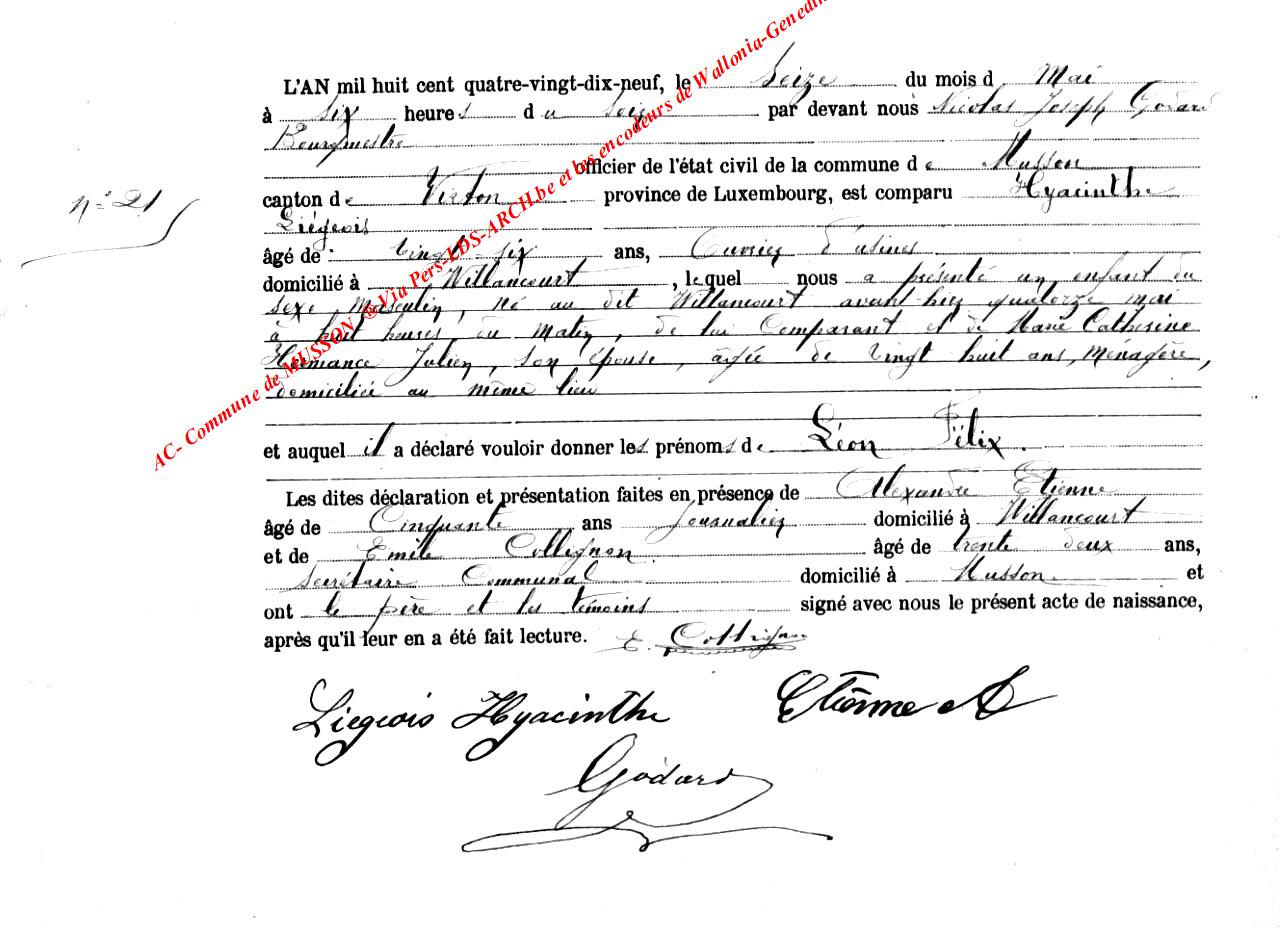 L'AN mil huit cent quatre-vingt-dix-neuf, le Seize du mois d Mai
à six heures du soir par devant nous Nicolas Joseph Godard
Bourgmestre
officier de l'état civil de la commune de Musson
canton de Virton province de Luxembourg, est comparu Hyacinthe
Liégeois
n° 21
âgé de vingt-six ans, Ouvrier d'usines
domicilié à Willancourt, lequel nous a présenté un enfant du
sexe masculin, né au dit Willancourt avant-hier quatorze mai
à huit heures du matin, de lui Comparant et de Marie Catherine
Hermance Julien, son épouse, agée de vingt huit ans, Ménagère,
domiciliée au même lieu
et auquel il a déclaré vouloir donner les prénoms de Léon Félix.
Les dites déclaration et présentation faites en présence de Alexandre Etienne
âgé de Cinquante ans Journalier domicilié à Willancourt
et de Emile Collignon âgé de trente deux ans,
Secrétaire Communal domicilié à Musson et
ont le père et les témoins signé avec nous le présent acte de naissance,
après qu'il leur en a été fait lecture. E. Collignon
Liégeois Hyacinthe Etienne A
Godard
AC- Commune de MUSSON ®Via Pers-LDS-ARCH.be et les encodeurs de Wallonia-Genedin